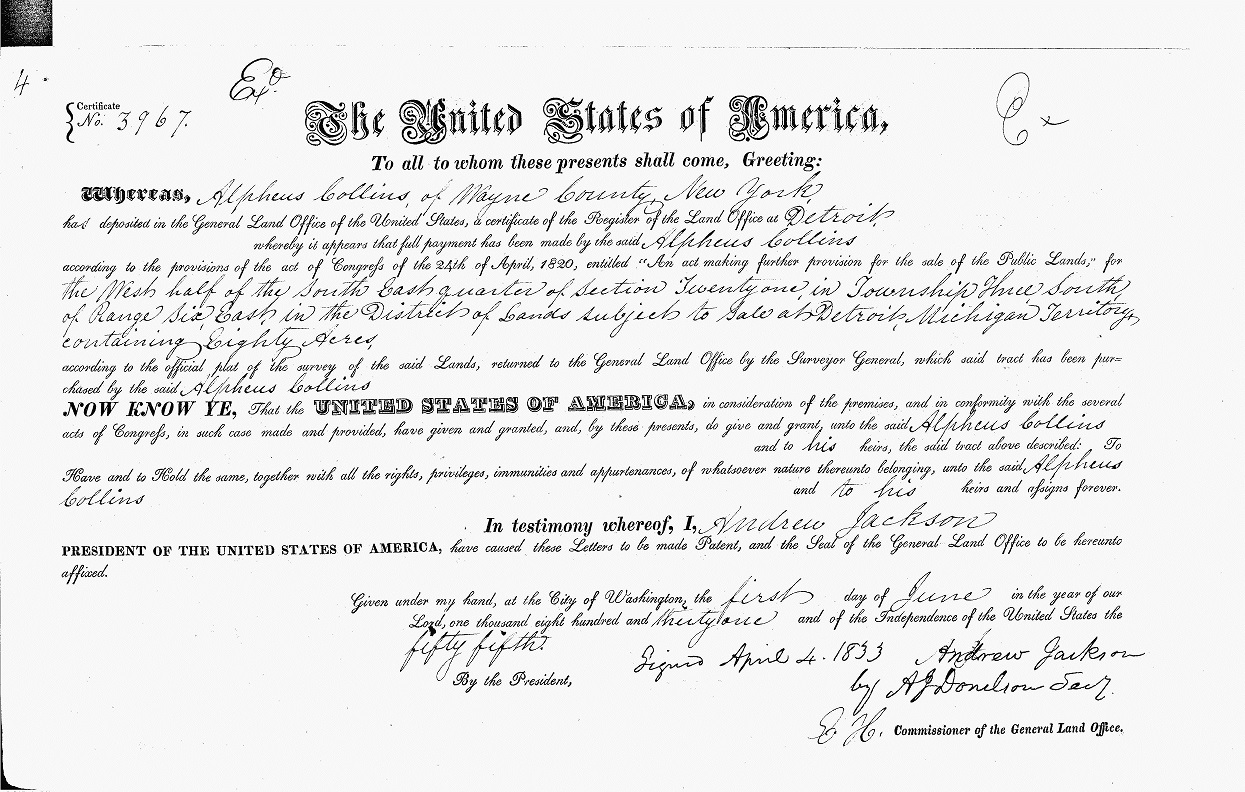 4
Exd.
{ Certificate
No. 3967.
The United States of America,
To all to whom these presents shall come, Greeting:
Whereas, Alpheus Collins, of Wayne County, New York,
has deposited in the General Land Office of the United States, a certificate of the Register of the Land Office at Detroit,
whereby it appears that full payment has been made by the said Alpheus Collins
according to the provisions of the act of Congress of the 24th of April, 1820, entitled "An act making further provision for the sale of the Public Lands," for
the West half of the South East quarter of Section Twenty one, in Township Three South
of Range Six, East, in the District of Lands subject to sale at Detroit, Michigan Territory,
containing Eighty Acres,
according to the official plat of the survey of the said Lands, returned to the General Land Office by the Surveyor General, which said tract has been pur=
chased by the said Alpheus Collins
NOW KNOW YE, That the UNITED STATES OF AMERICA, in consideration of the premises, and in conformity with the several
acts of Congress, in such case made and provided, have given and granted, and, by these presents, do give and grant, unto the said Alpheus Collins
and to his heirs, the said tract above described: To
Have and to Hold the same, together with all the rights, privileges, immunities and appurtenances, of whatsoever nature thereunto belonging, unto the said Alpheus
Collins and to his heirs and assigns forever.
In testimony whereof, I, Andrew Jackson
PRESIDENT OF THE UNITED STATES OF AMERICA, have caused these Letters to be made Patent, and the Seal of the General Land Office to be hereunto
affixed.
Given under my hand, at the City of Washington, the first day of June in the year of our
Lord, one thousand eight hundred and thirty one and of the Independence of the United States the
fifty fifth.
Signed April 4. 1833 Andrew Jackson
By the President,
by A J Donelson Secy.
E H. Commissioner of the General Land Office.